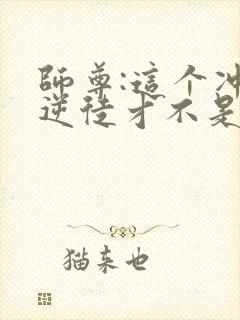 師尊:這个冲
逆徒才不是
猫来也